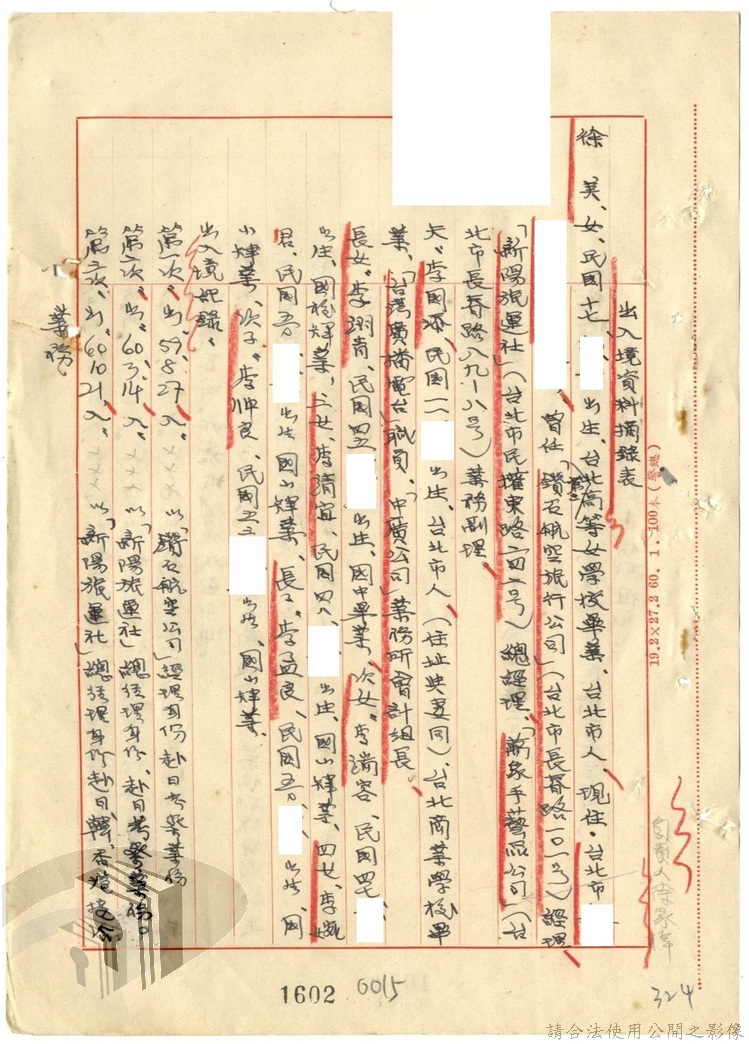 出入境資料摘錄表
徐 美、女、民國十七、 出生、台北高等女學校畢業、台北市人、現住·台北市
曾任「鑽石航空旅行公司」(台北市長春路一〇一号)經理
「新陽旅運社」(台北市民權東路二四二号)總經理、「萬象手藝品公司」(台
北市長春路八九-八號)業務副理
夫:李國添、民國一一 出生、台北市人、(住址與妻同)、台北商業學校畢
業、「台灣廣播電台」職員、「中廣公司」業務所會計組長
長女:李翊青、民國四五 出生、國中畢業、次女:李瑞容、民國四七
出生、國校畢業、三女:李靖宜、民國四八 出生、國小畢業、四女:李
君、民國五 出生 國小肄業、長子:李孟良、民國五 出生、國
小肄業、次子:李帥良、民國五三 出生、國小肄業、
出入境紀錄:
第一次:出:59.8.27、入:××× 以「鑽石航空公司」經理身份赴日考察業務
第二次:出:60.3.14、入:××× 以「新陽旅運社」總經理身份、赴日考察業務。
第三次:出:60.10.21、入:××× 以「新陽旅運社」總經理身份赴日、韓、香港接洽
業務
19.2×27.2 60. 1. 100本(警總)
負責人徐
324
1602
0015
請合法使用公開之影像